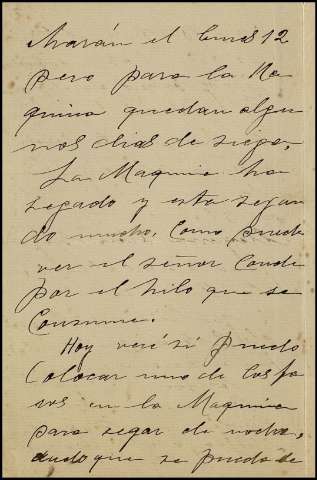 barán el lunes 12
pero para la Ma
quina quedan algu
nos dias de siega.
La Maquina ha
segado y esta segan
do mucho, como puede
ver el señor Conde
por el hilo que se
Consume.
Hoy veré si puedo
Colocar uno de los fa
ros en la Maquina
para segar de noche,
dudo que se pueda de